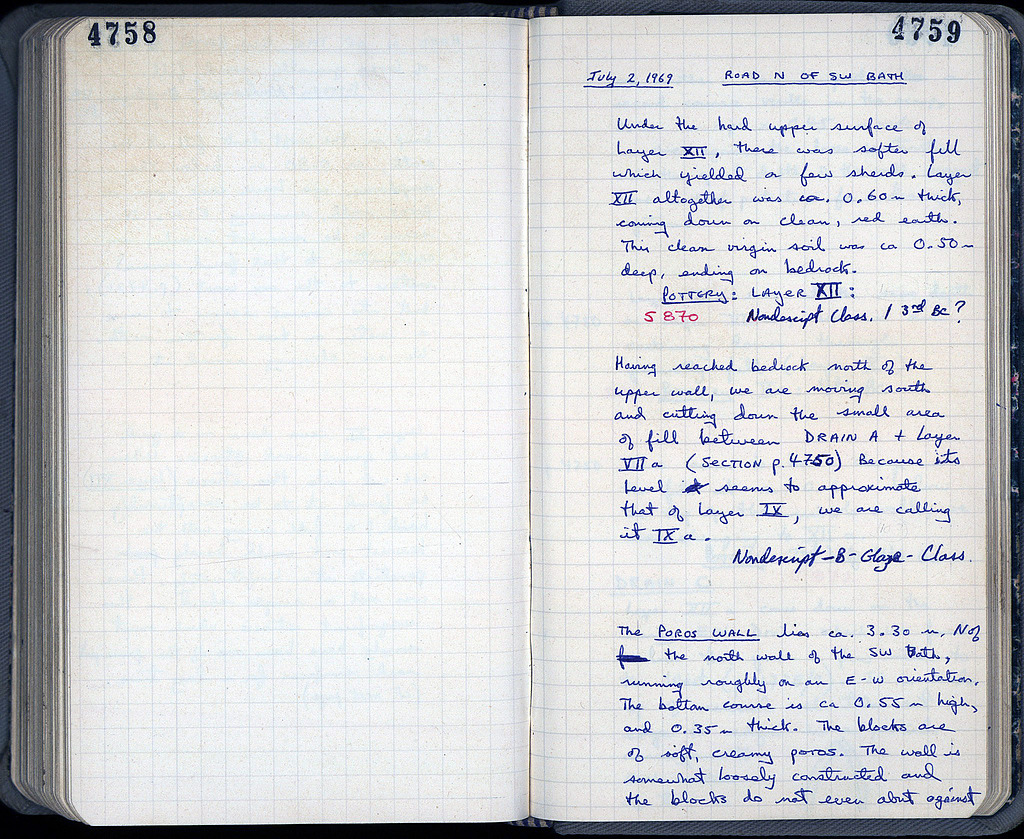 4758
4759
July 2, 1969 ROAD N OF SW BATH
Under the hard upper surface of
Layer XII, there was softer fill
which yielded a few sherds. Layer
XII altogether was ca. 0.60 m thick,
coming down on clean, red earth.
This clean virgin soil was ca 0.50 m
deep, ending on bedrock.
POTTERY: LAYER XII:
5870 Nondescript Class. / 3rd BC?
Having reached bedrock north of the
upper wall, we are moving south
and cutting down the small area
of fill between DRAIN A + Layer
VII a (SECTION p. 4750) Because its
level seems to approximate
that of Layer IX, we are calling
it IX a.
Nondescript-B-Glaze-Class.
The POROS WALL lies ca. 3.30 m. N of
the north wall of the SW Bath,
running roughly on an E-W orientation.
The bottom course is ca 0.55 m high,
and 0.35 m thick. The blocks are
of soft, creamy poros. The wall is
somewhat loosely constructed and
the blocks do not even abut against